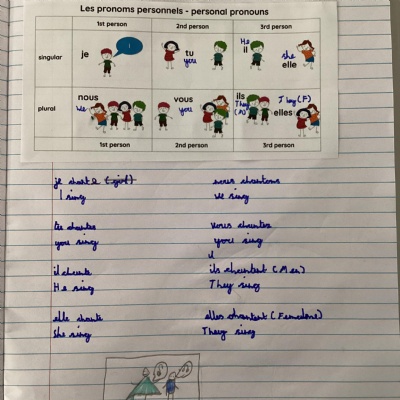 Les pronoms personnels - personal pronouns
1st person 2nd person 3rd person
singular je I tu you He il she elle
plural nous we vous you ils They (M) They (F) elles
1st person 2nd person 3rd person
je chante nous chantons
I sing we sing
tu chantes vous chantez
you sing you sing
il chante ils chantent (Men)
He sing They sing
elle chante elles chantent
She sing They sing